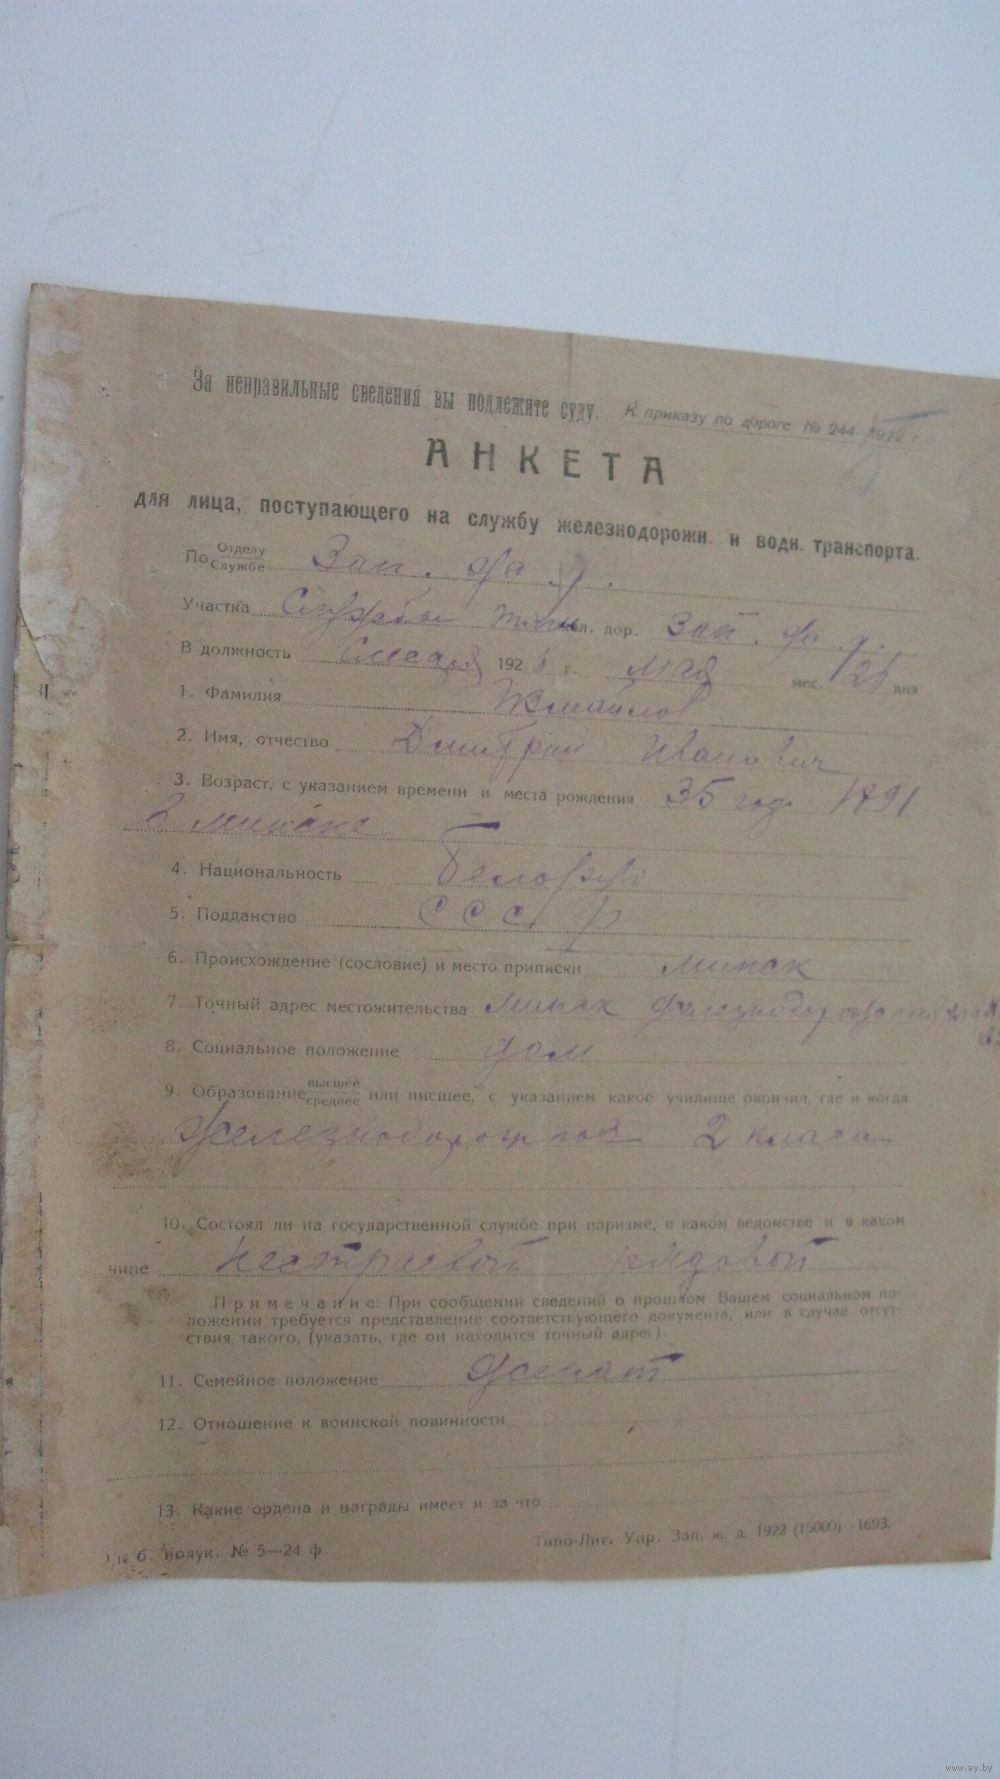 За неправильные сведения вы подлежите суду.
К приказу по дороге № 244 1922 г.
АНКЕТА
для лица, поступающего на службу железнодорожн. и водн. транспорта.
По Отделу Службе. Зап. ж д.
Участка Службы жел. дор. Зап. ж д.
В должность Слесаря 1926 г. мая мес. 26 дня
1. Фамилия Жмайлов
2. Имя, отчество Дмитрий Иванович
3. Возраст, с указанием времени и места рождения 35 год. 1891
в минске
4. Национальность
5. Подданство СССР
6. Происхождение (сословие) и место приписки минск
7. Точный адрес местожительства минск
8. Социальное положение дом
9. Образование высшее среднее или нисшее, с указанием какое училище окончил, где и когда
Железнодорожное 2 класа
10. Состоял ли на государственной службе при царизме, в каком ведомстве и в каком
чине рядовой
Примечание: При сообщении сведений о прошлом Вашем социальном по-
ложении требуется представление соответствующего документа, или в случае отсут-
ствия такого, (указать, где он находится точный адрес).
11. Семейное положение женат
12. Отношение к воинской повинности
13. Какие ордена и награды имеет и за что
1/16 б. полук. № 5—24 ф.
Типо-Лит. Упр. Зап. ж. д. 1922 (15000)—1693.
www.ay.by